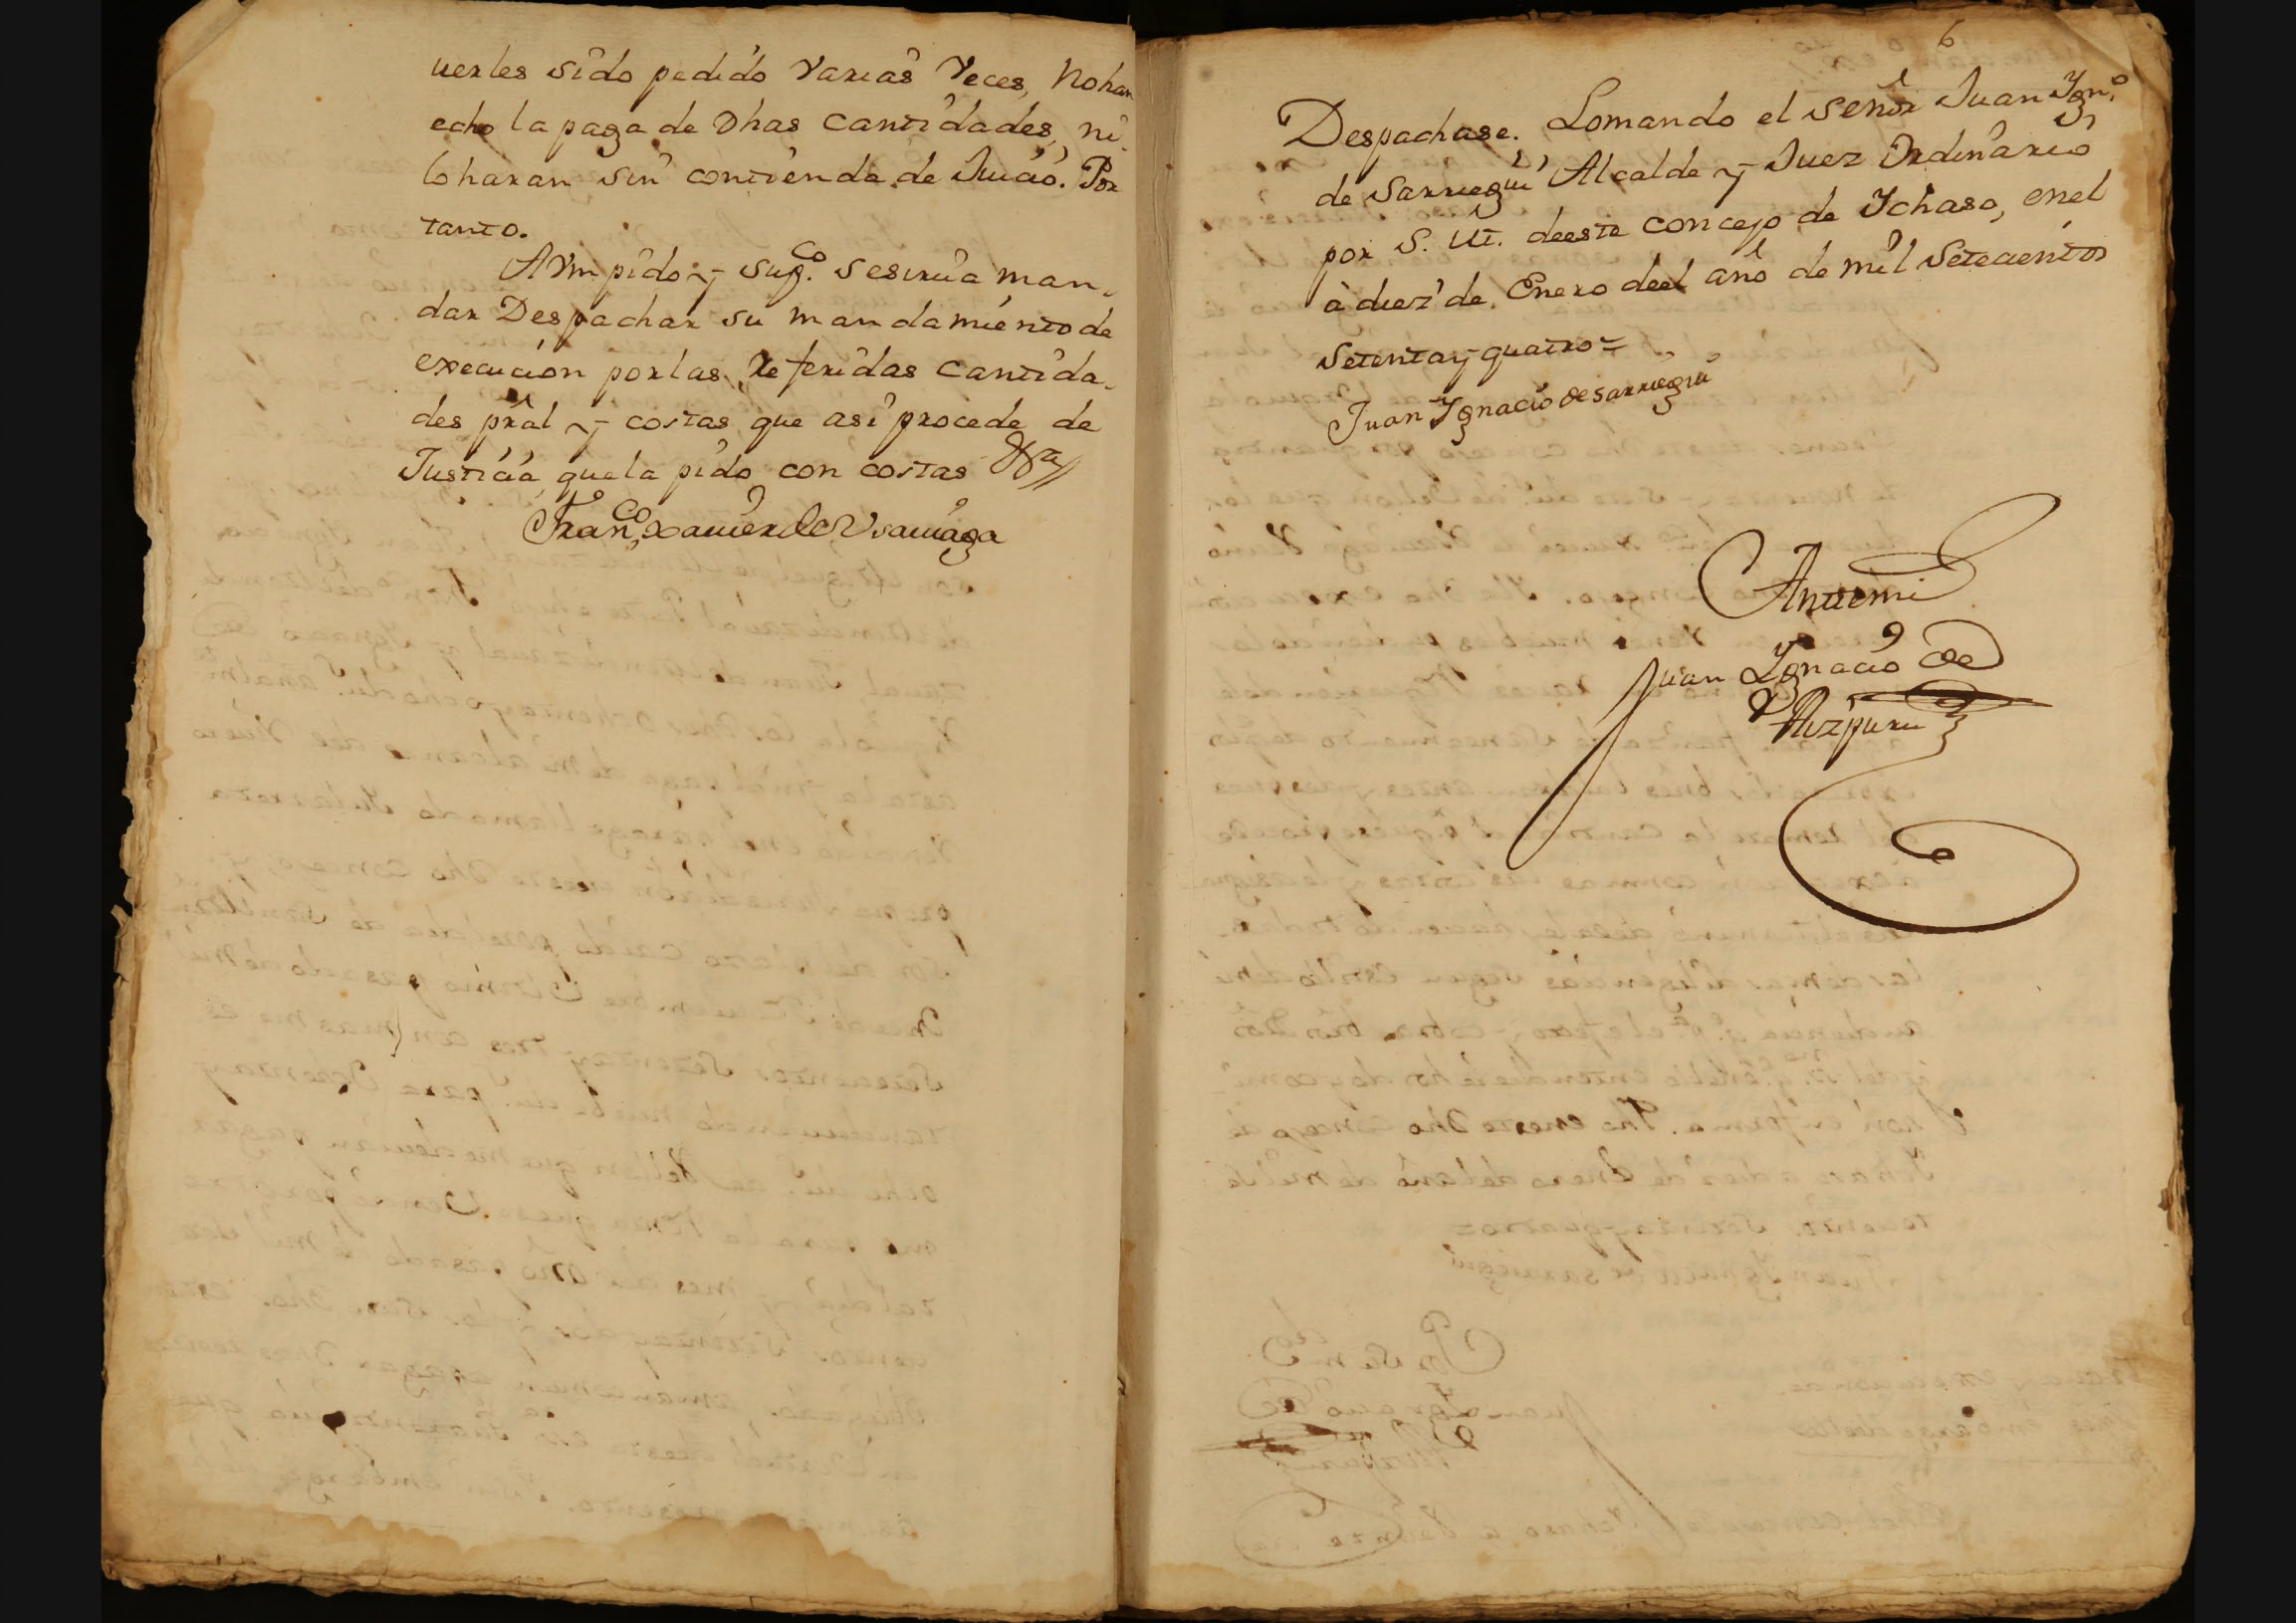 uerles sido pedido Varias Veces, no han
echo la paga de dhas cantidades, ni
lo haran sin contienda de Juicio. Por
tanto.
A Vm pido y sup.co se sirua man-
dar Despachar su mandamiento de
execucion por las referidas cantida-
des pral y costas que asi procede de
Justicia que la pido con costas &ra
Fran.co Xauier de Vsauiaga
6
Despachase. Lo mando el señor Juan Ygn.o
de Sarriegui Alcalde y Juez Ordinario
por S. M. de este concejo de Ychaso, en el
à diez de Enero deel año de mil Setecientos
Setenta y quatro=
Juan Ygnacio de Sarriegui
Antemi
Juan Ygnacio de
Aizpuru